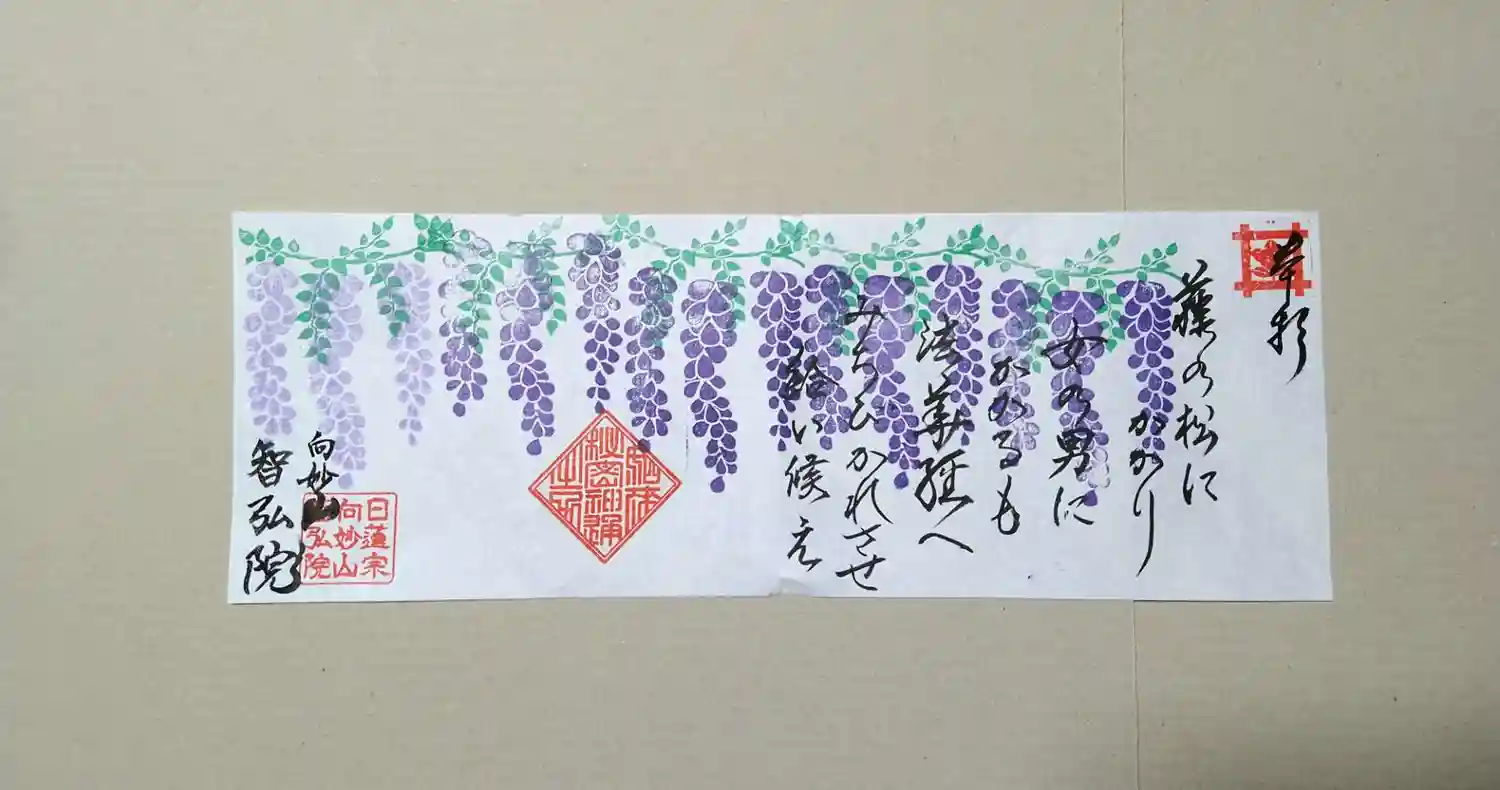 奉拝
藤の松に
かかり
女の男に
かかるも
法華経へ
みちびかれさせ
給い候え
如来
秘密神通
之力
向妙山
智弘院
日蓮宗
向妙山
智弘院